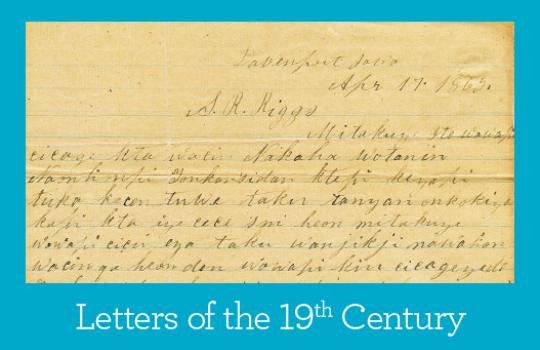 Davenport Iowa
Apr 17. 1865.
S. R. Riggs
Mitakuye Ito wowapi
cicage kta wacin Nakaha wotanin
Tonkansidan ktepi keyapi
tuka kecen tuwe taku tanyan onkokiya
kapi kta iyececa sni heon mitakuye
wowapi cicu eya taku wanjikji nawahon
wacin qa heon den wowapi kin cicage
Letters of the 19th Century